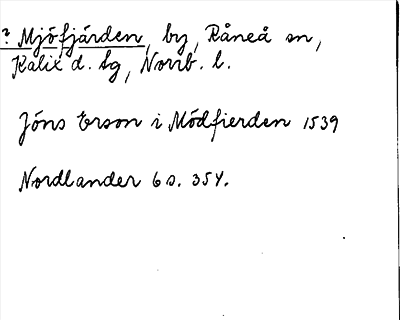 ? Mjöfjärden, by, Råneå sn,
Kalix d. tg, Norrb. l.
Jöns Erson i Mödfierden 1539
Nordlander 6 s. 354.